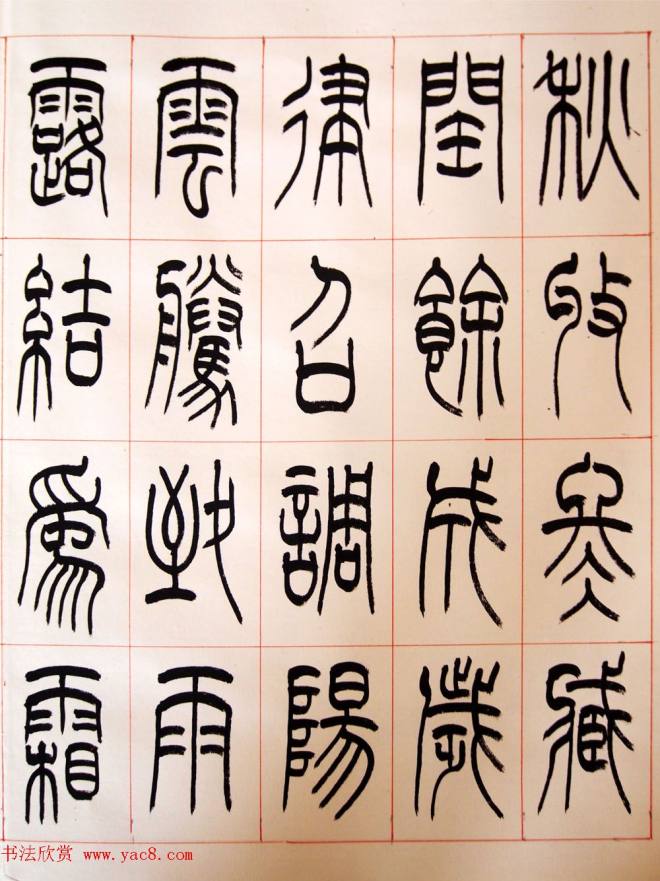 秋收冬藏
閏餘成歲
律召調陽
雲騰致雨
露結為霜
书法欣赏 www.yac8.com